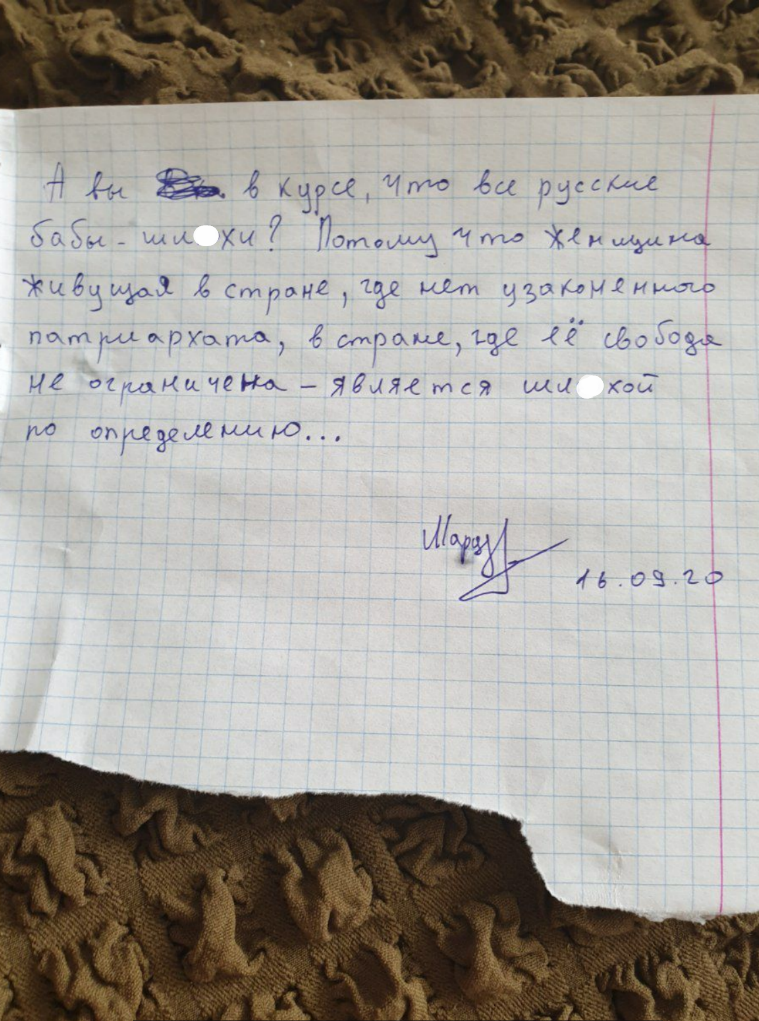 А вы в курсе, что все русские
бабы - шл хи? Потому что женщина
живущая в стране, где нет узаконенного
патриархата, в стране, где её свобода
не ограничена – является шл хой
по определению...
16.09.20